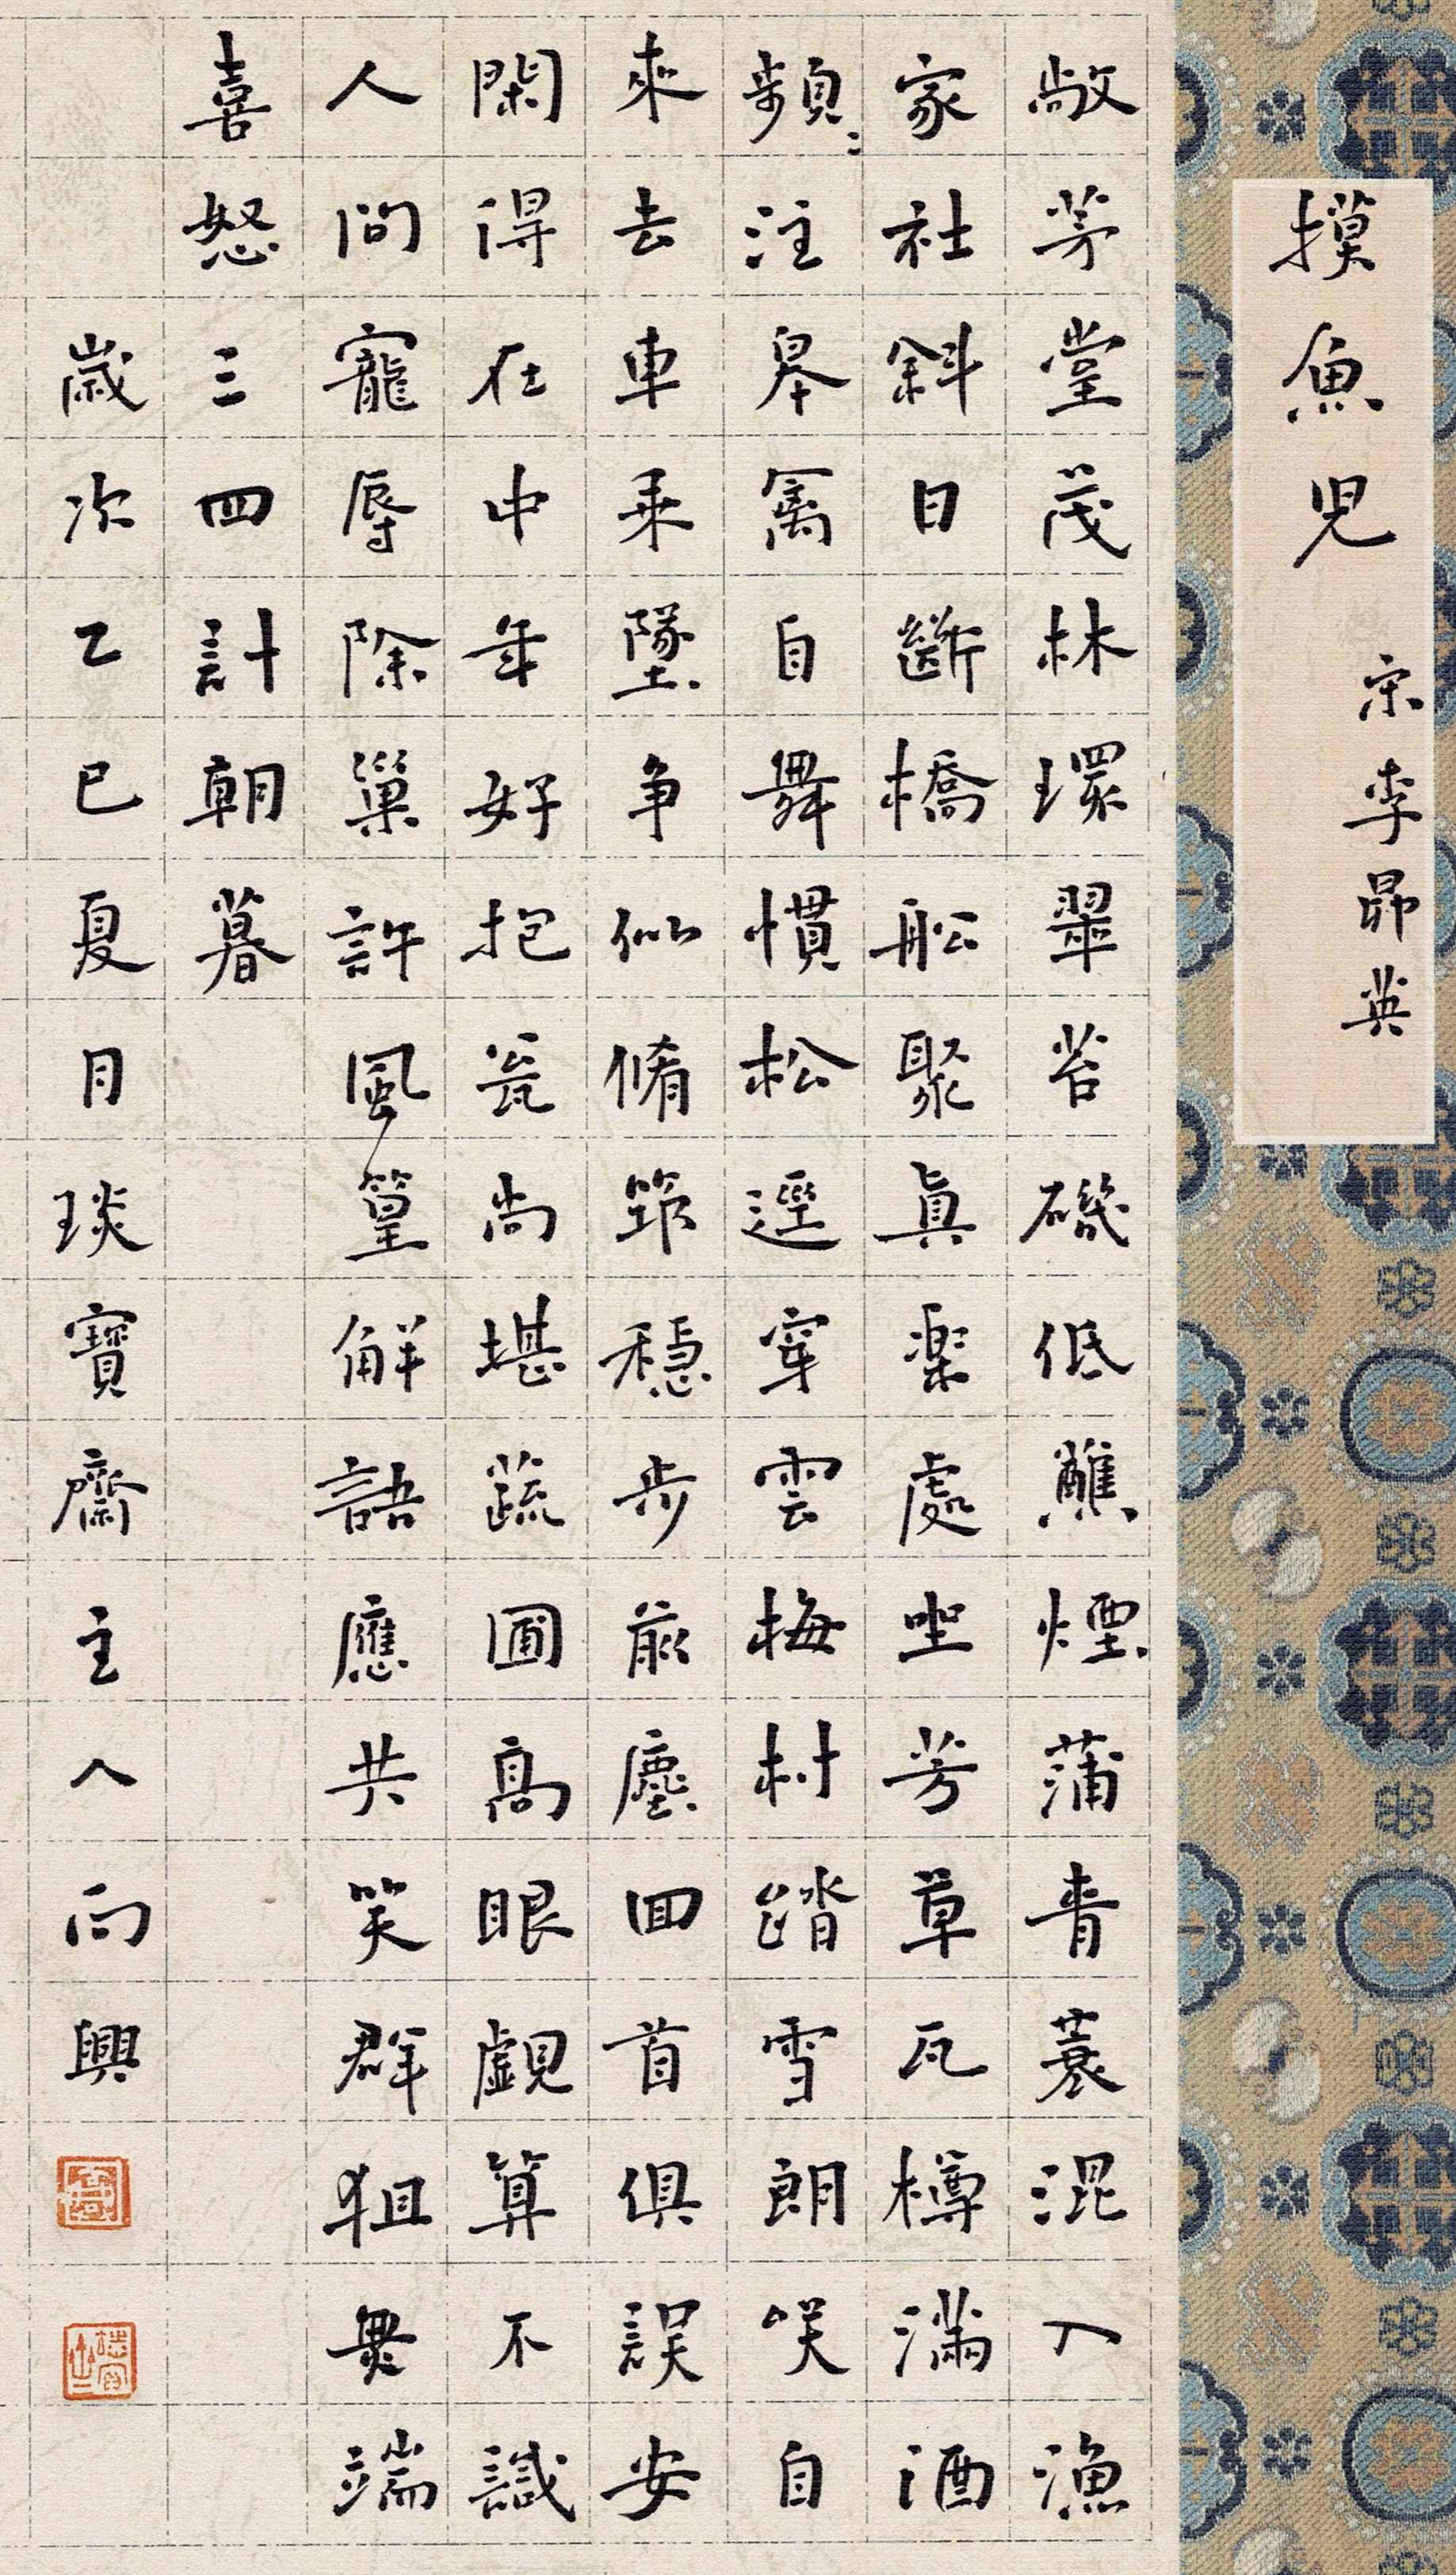 摸魚児 宋李昴英
敞茅堂茂林環翠苔磯低蘸煙蒲青蓑混入漁
家社斜日斷橋船聚眞樂處坐芳草瓦樽滿酒
頻〻注皋禽自舞慣松逕穿雲梅村踏雪朗笑自
來去車乘墜争似脩筇穩步前塵回首俱誤安
閑得在中年好抱瓮尚堪蔬圃高眼覷算不識
人間寵辱除巢許風篁解語應共笑群狙無端
喜怒三四計朝暮
歲次乙巳夏月琰寶齋主人向興